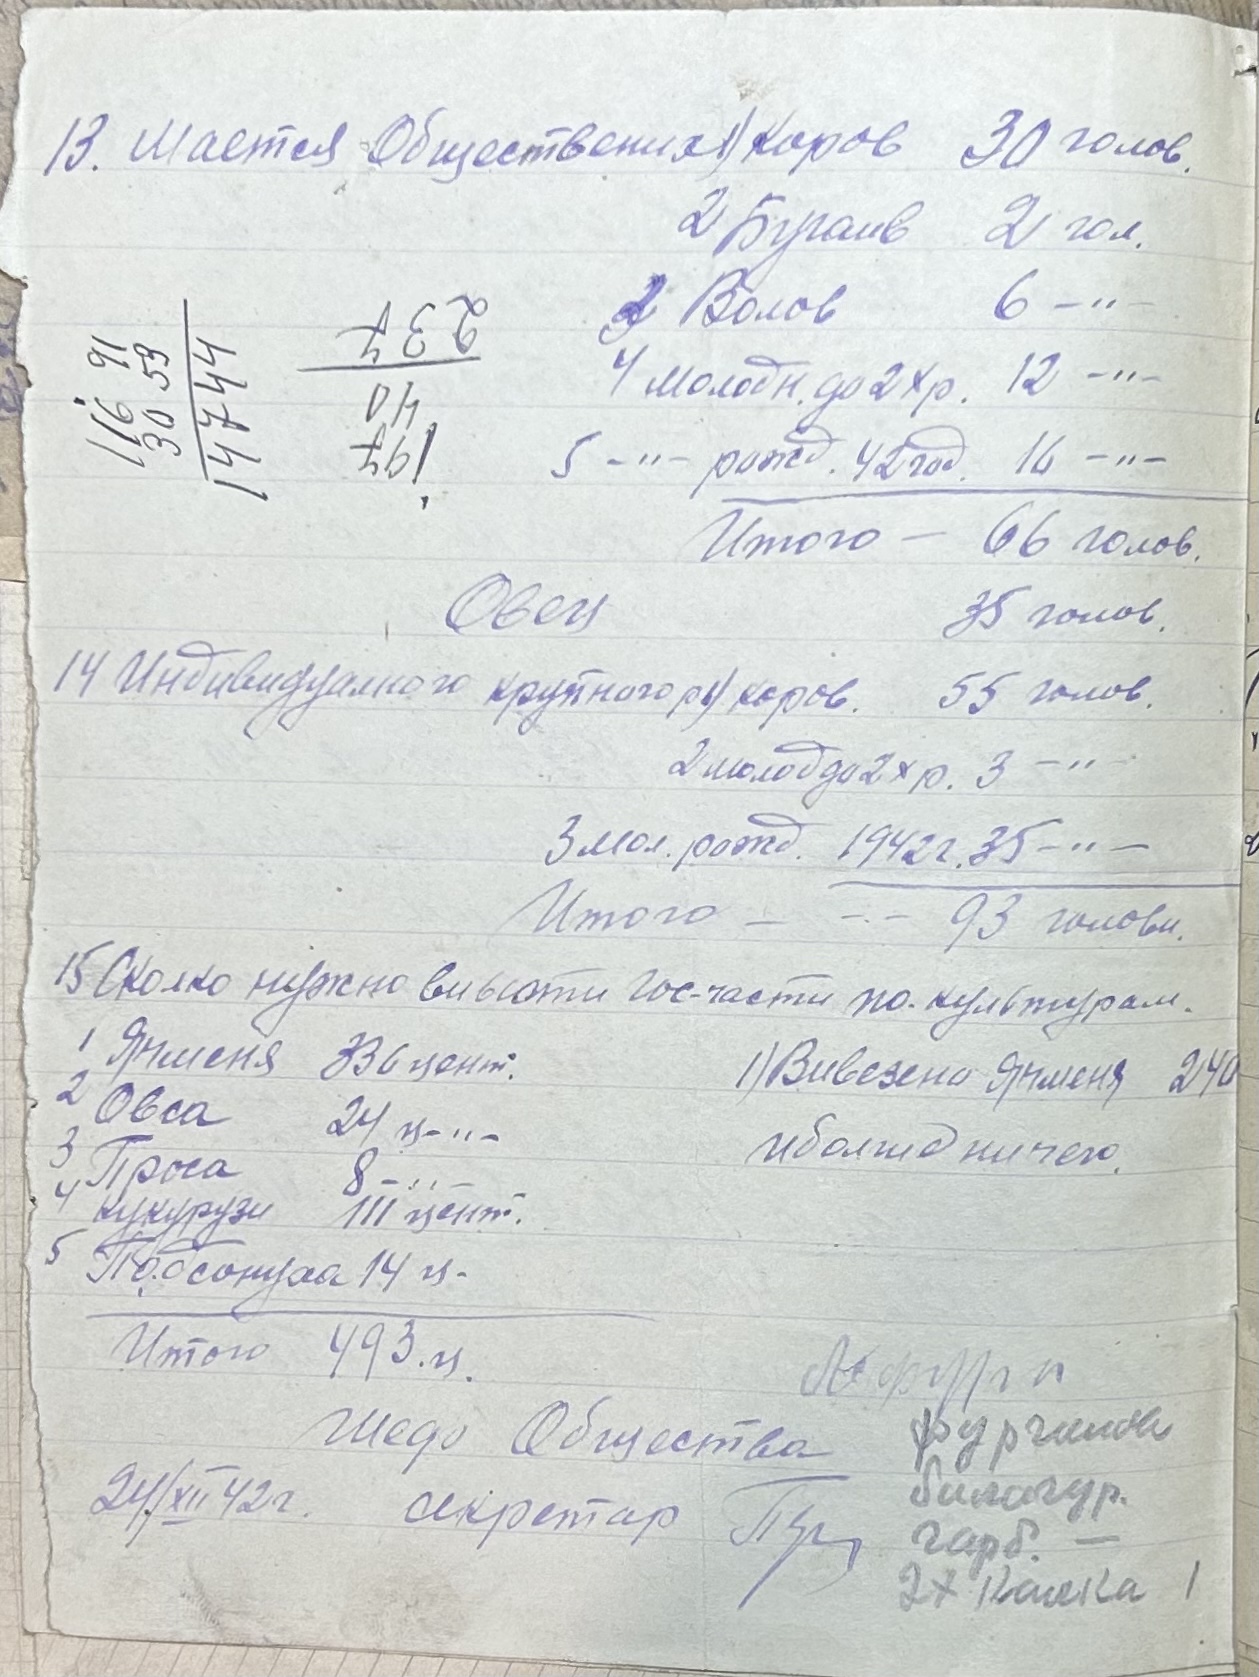 13. Мается Обществених 1) Коров 30 голов.
2 Бугаив 2 гол.
3 Волов 6 -"-
4 Молодн. до 2х р. 12 -"-
5 -"- рожд. 42 год. 16 -"-
Итого - 66 голов.
Овец 35 голов.
237
40
197
116 91
30 53
147 44
14 Индивидуалного крупного р 1) коров. 55 голов.
2 молод до 2х р. 3 -"-
3 мол. рожд. 1942 г. 35 -"-
Итого - -"- 93 голови.
15 Сколко нужно вивезти гос-части по культурам.
1 Ячменя 336 цент.
2 Овса 24 ц -"-
3 Проса 8 -"-
4 кукурузи 111 цент.
5 Подсонуха 14 ц-
Итого 493 ц.
1) Вивезено Ячменя 240
иболше ничего.
Общества
24/XII 42 г. секретар
гарб. —
2х 1